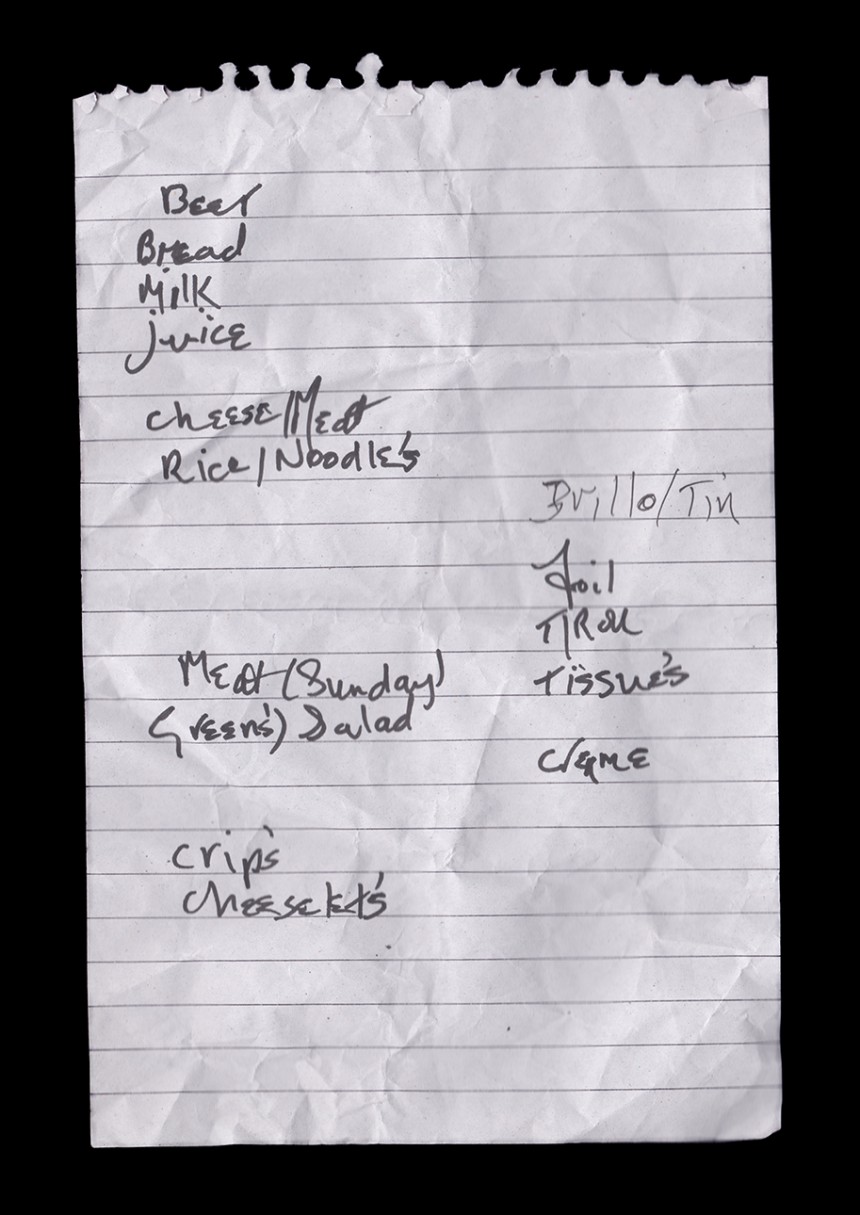 Beer
Bread
Milk
juice
cheese/Meat
Rice/Noodle's
Meat (Sunday)
Green's) Salad
Crip's
Cheeselet's
Brillo/Tin
foil
T/Roll
Tissue's
Creme